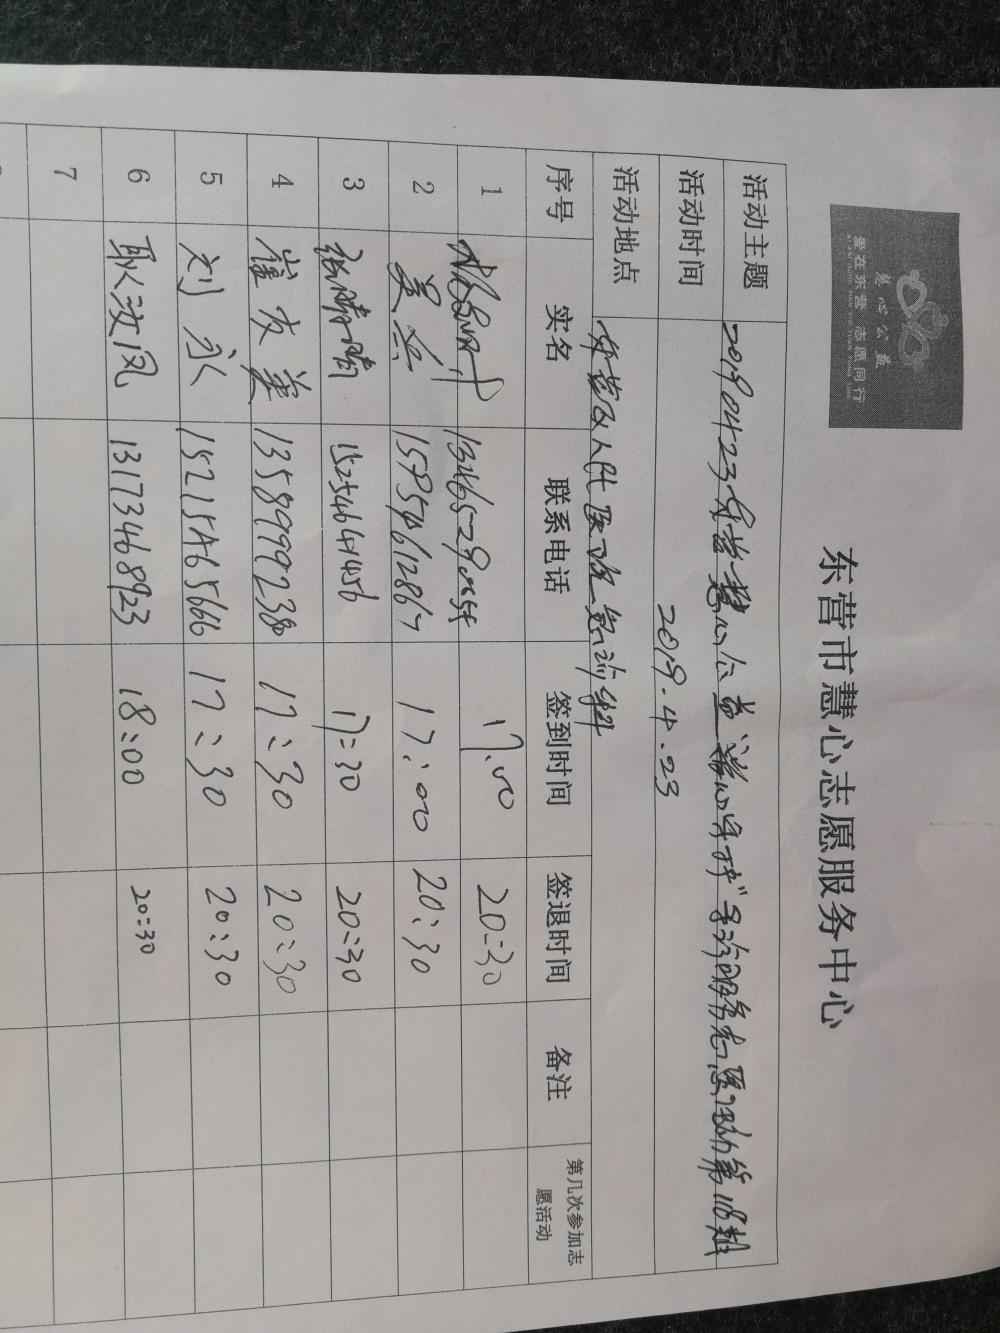 慧心公益
爱在东营 志愿同行
东营市慧心志愿服务中心
活动主题 20190423东营慧心公益"导诊服务志愿活动第118期
活动时间 2019.4.23
活动地点 东营区人民医院急诊科
序号 实名 联系电话 签到时间 签退时间 备注 第几次参加志愿活动
1 17.00 20:30
2 吴兵 15954612867 17:00 20:30
3 15254641456 17:30 20:30
4 崔友美 13589992380 17:30 20:30
5 刘永 15215465666 17:30 20:30
6 耿汝凤 13173468923 18:00 20:30
7